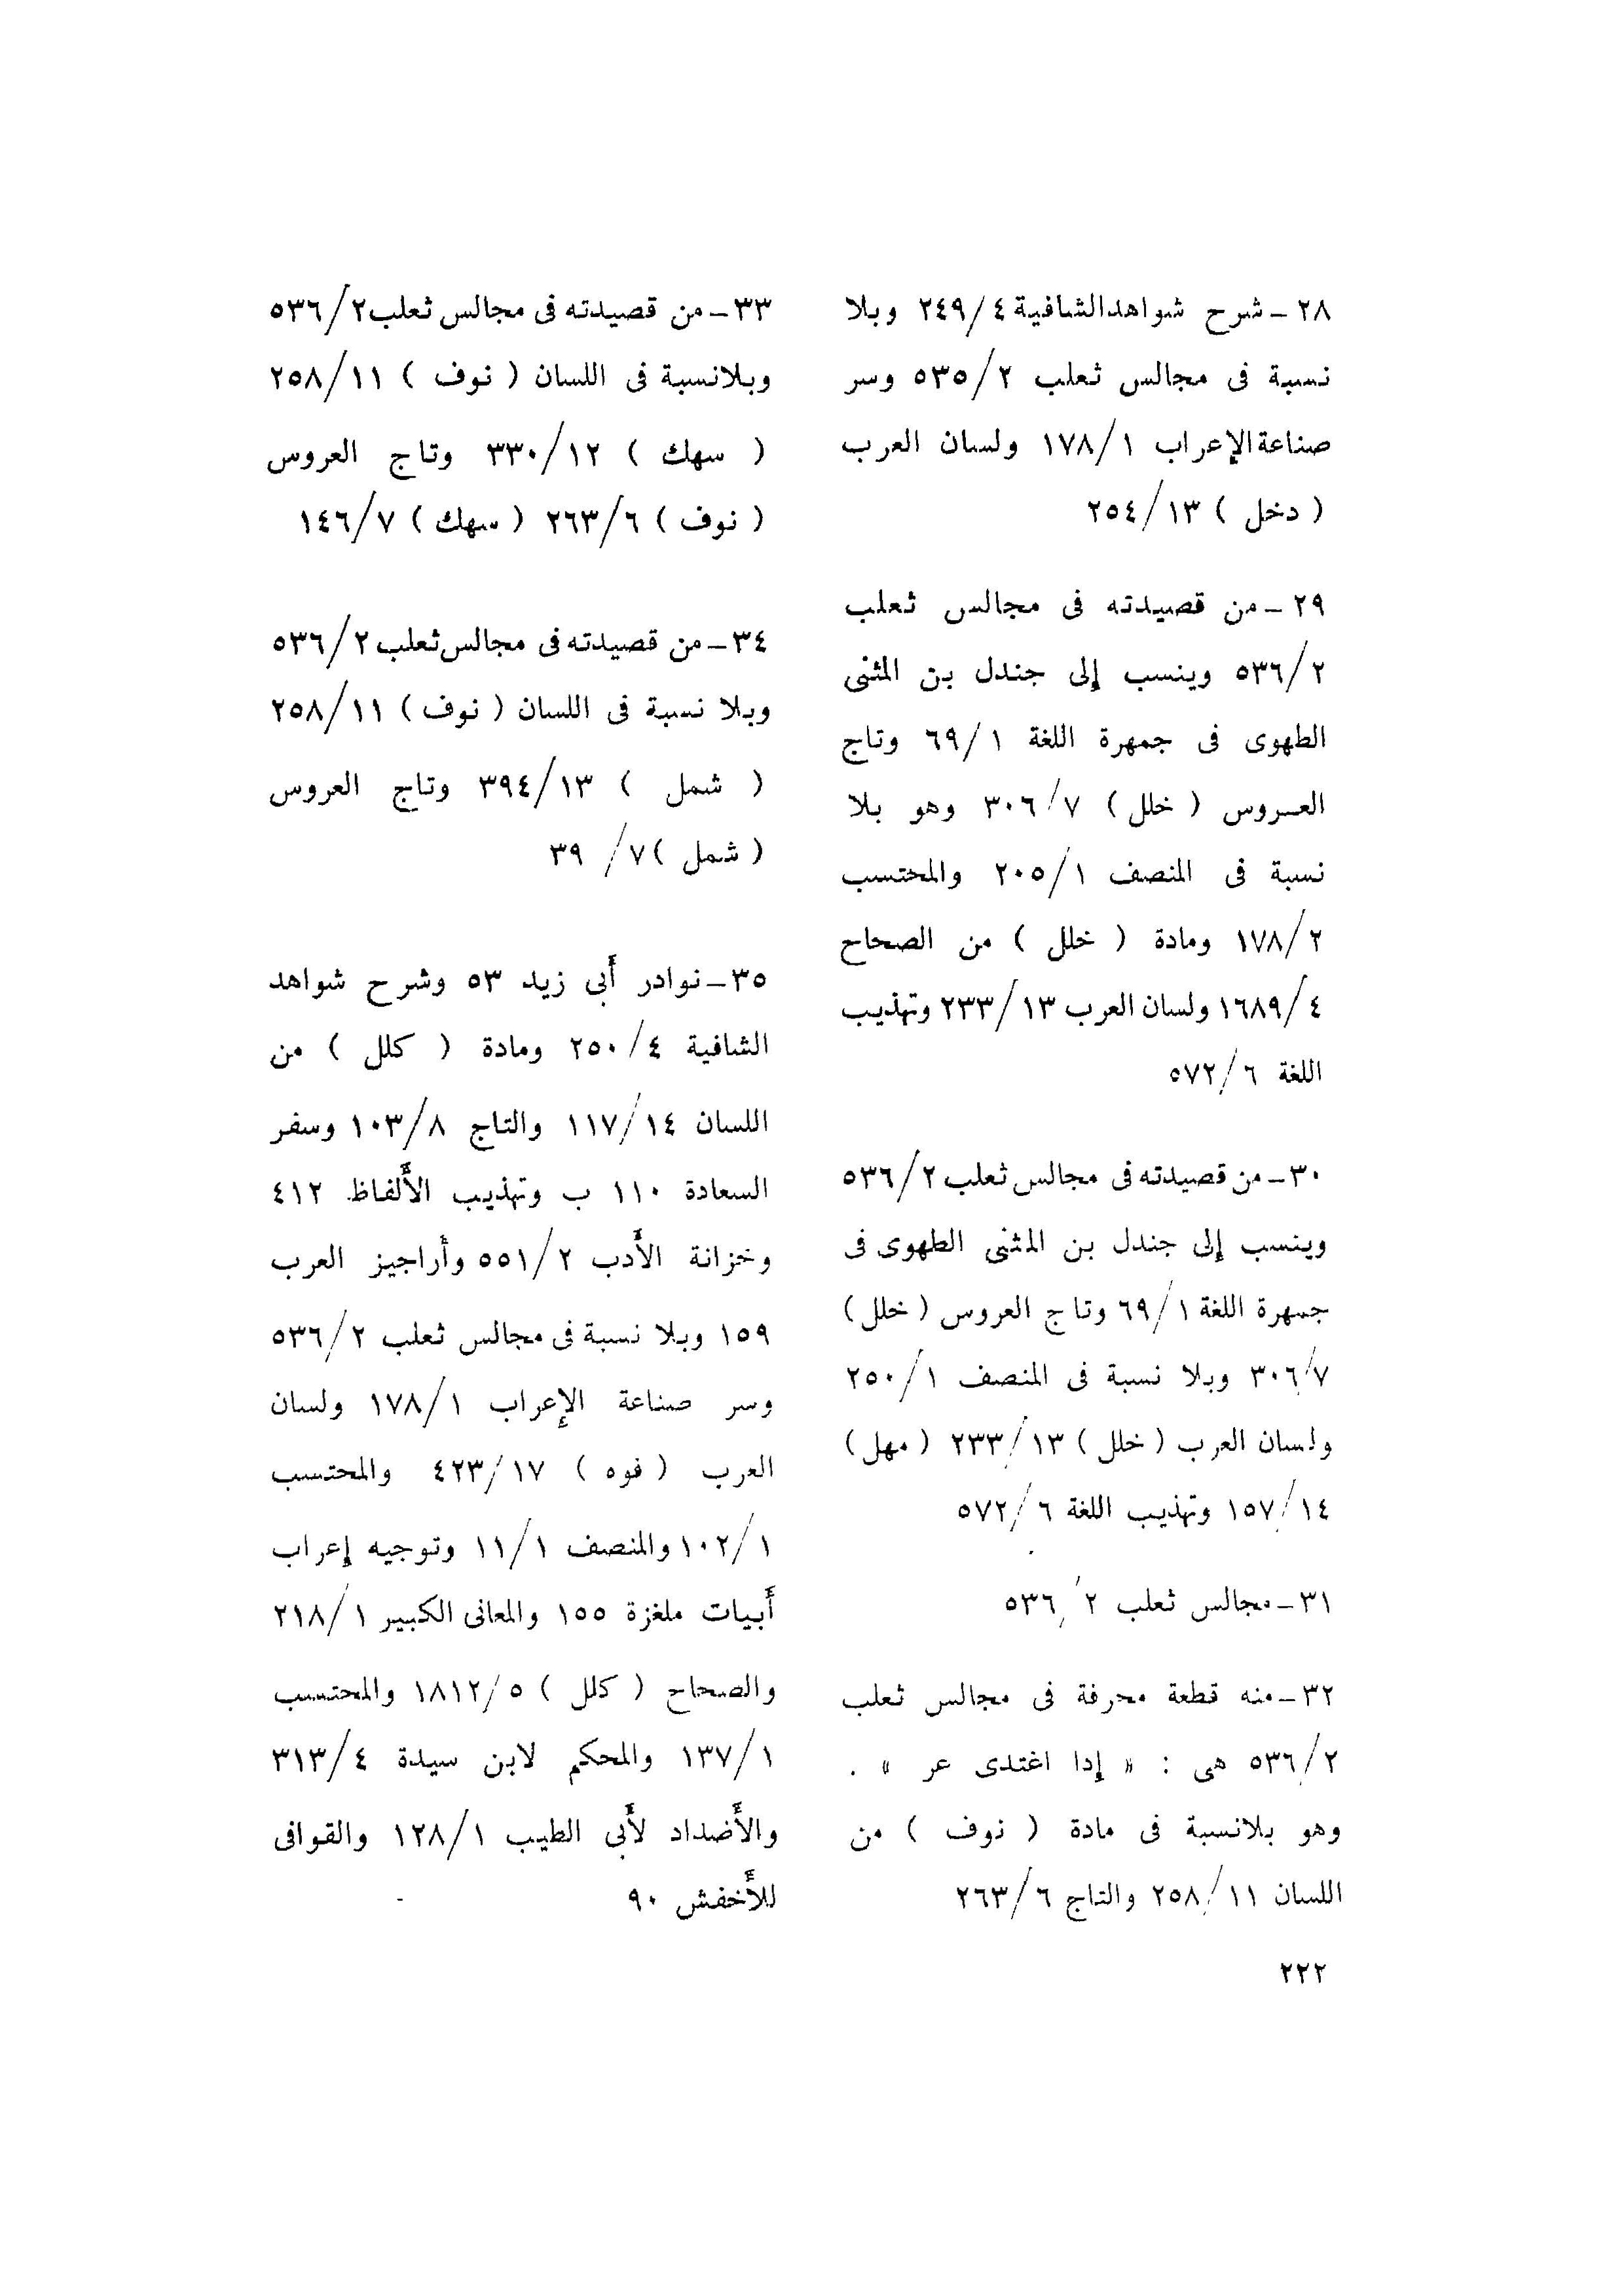 ٢٨ – شرح شواهد الشافية ٤/٢٤٩ وبلا
نسبة فى مجالس ثعلب ٢/٥٣٥ وسر
صناعة الإعراب ١/١٧٨ ولسان العرب
( دخل ) ١٣/٢٥٤
٢٩ – من قصيدته فى مجالس ثعلب
٢/٥٣٦ وينسب إلى جندل بن المثنى
الطهوى فى جمهرة اللغة ١/٦٩ وتاج
العروس ( خلل ) ٧/٣٠٦ وهو بلا
نسبة فى المنصف ١/٢٠٥ والمحتسب
٢/١٧٨ ومادة ( خلل ) من الصحاح
٤/١٦٨٩ ولسان العرب ١٣/٢٣٣ وتهذيب
اللغة ٦/٥٧٢
٣٠ – من قصيدته فى مجالس ثعلب ٢/٥٣٦
وينسب إلى جندل بن المثنى الطهوى فى
جمهرة اللغة ١/٦٩ وتاج العروس ( خلل )
٧/٣٠٦ وبلا نسبة فى المنصف ١/٢٥٠
ولسان العرب ( خلل ) ١٣/٢٣٣ ( مهل )
١٤/١٥٧ وتهذيب اللغة ٦/٥٧٢
٣١ – مجالس ثعلب ٢/٥٣٦
٣٢ – منه قطعة محرفة فى مجالس ثعلب
٢/٥٣٦ هى : « إدا اغتدى عر » .
وهو بلانسبة فى مادة ( نوف ) من
اللسان ١١/٢٥٨ والتاج ٦/٢٦٣
٣٣ – من قصيدته فى مجالس ثعلب ٢/٥٣٦
وبلانسبة فى اللسان ( نوف ) ١١/٢٥٨
( سهك ) ١٢/٣٣٠ وتاج العروس
( نوف ) ٦/٢٦٣ ( سهك ) ٧/١٤٦
٣٤ – من قصيدته فى مجالس ثعلب ٢/٥٣٦
وبلا نسبة فى اللسان ( نوف ) ١١/٢٥٨
( شمل ) ١٣/٣٩٤ وتاج العروس
( شمل ) ٧/ ٣٩
٣٥ – نوادر أبى زيد ٥٣ وشرح شواهد
الشافية ٤/٢٥٠ ومادة ( كلل ) من
اللسان ١٤/١١٧ والتاج ٨/١٠٣ وسفر
السعادة ١١٠ ب وتهذيب الألفاظ ٤١٢
وخزانة الأدب ٢/٥٥١ وأراجيز العرب
١٥٩ وبلا نسبة فى مجالس ثعلب ٢/٥٣٦
وسر صناعة الإعراب ١/١٧٨ ولسان
العرب ( فوه ) ١٧/٤٢٣ والمحتسب
١/١٠٢ والمنصف ١/١١ وتوجيه إعراب
أبيات ملغزة ١٥٥ والمعانى الكبير ١/٢١٨
والصحاح ( كلل ) ٥/١٨١٢ والمحتسب
١/١٣٧ والمحكم لابن سيدة ٤/٣١٣
والأضداد لأبى الطيب ١/١٢٨ والقوافى
للأخفش ٩٠
٢٢٢